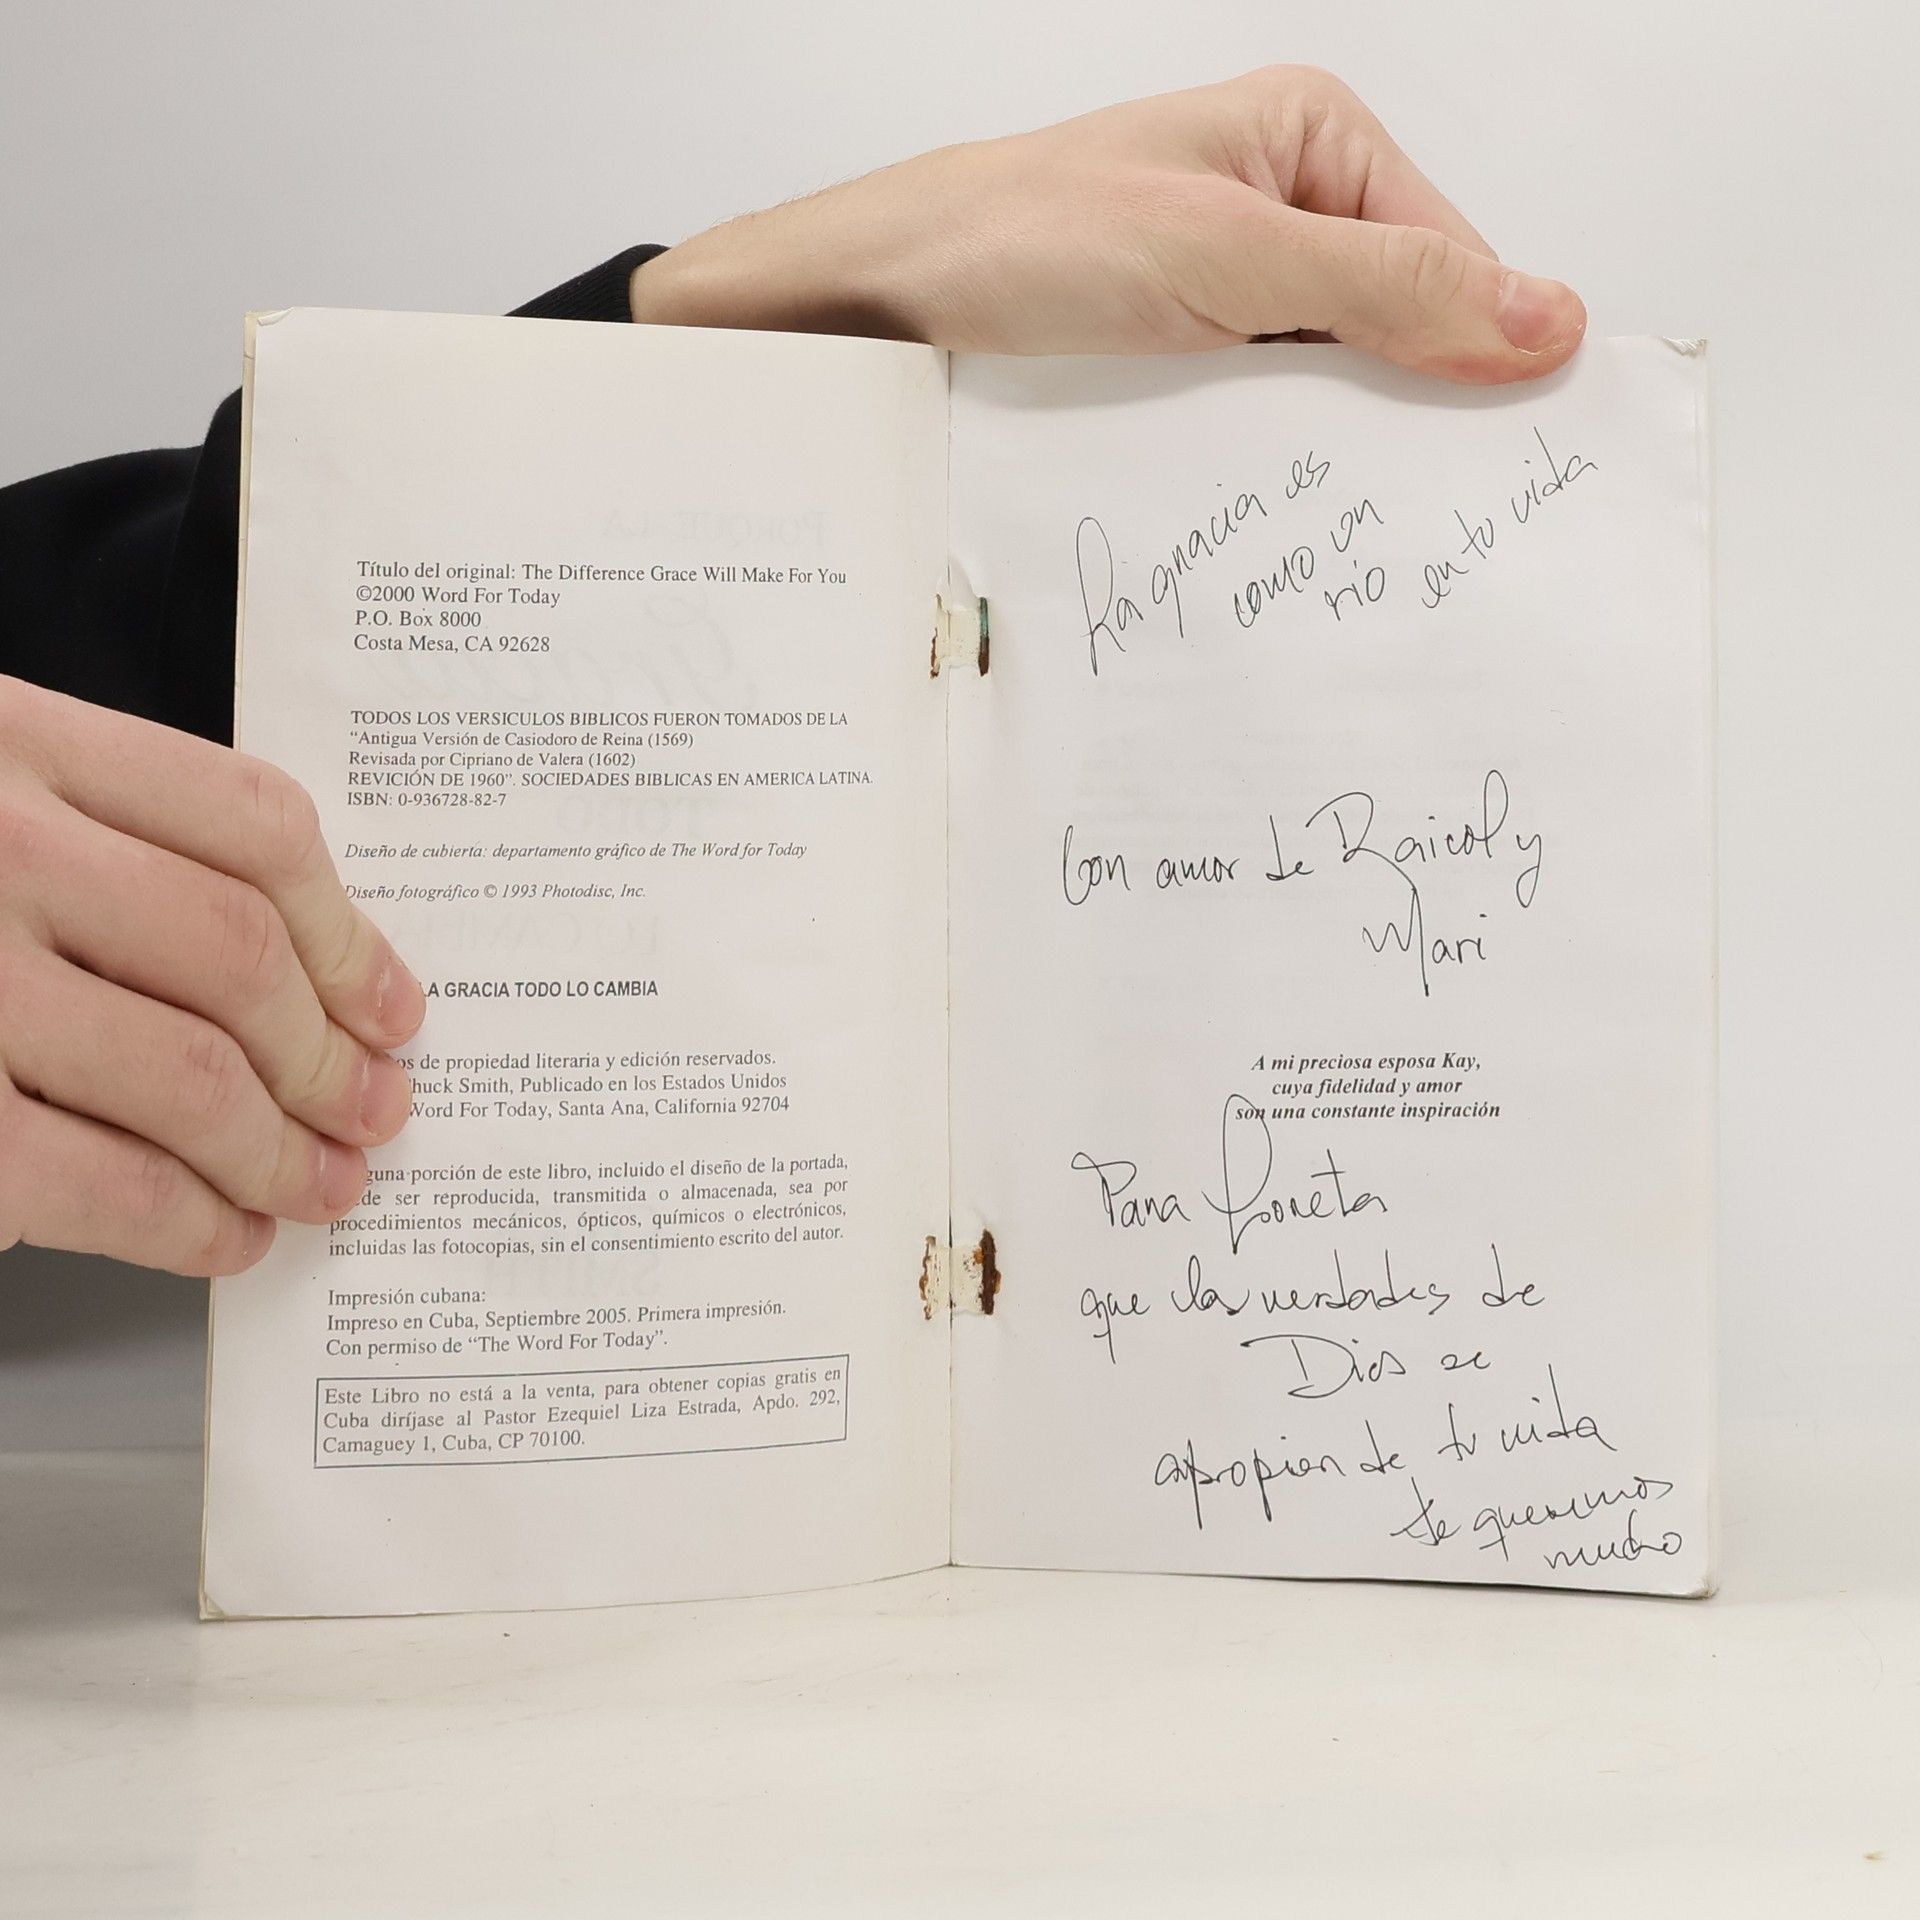 Título del original: The Difference Grace Will Make For You
©2000 Word For Today
P.O. Box 8000
Costa Mesa, CA 92628
TODOS LOS VERSICULOS BIBLICOS FUERON TOMADOS DE LA
“Antigua Versión de Casiodoro de Reina (1569)
Revisada por Cipriano de Valera (1602)
REVICIÓN DE 1960”. SOCIEDADES BIBLICAS EN AMERICA LATINA.
ISBN: 0-936728-82-7
Diseño de cubierta: departamento gráfico de The Word for Today
Diseño fotográfico © 1993 Photodisc, Inc.
LA GRACIA TODO LO CAMBIA
os de propiedad literaria y edición reservados.
huck Smith, Publicado en los Estados Unidos
Word For Today, Santa Ana, California 92704
guna porción de este libro, incluido el diseño de la portada,
de ser reproducida, transmitida o almacenada, sea por
procedimientos mecánicos, ópticos, químicos o electrónicos,
incluidas las fotocopias, sin el consentimiento escrito del autor.
Impresión cubana:
Impreso en Cuba, Septiembre 2005. Primera impresión.
Con permiso de “The Word For Today”.
Este Libro no está a la venta, para obtener copias gratis en
Cuba diríjase al Pastor Ezequiel Liza Estrada, Apdo. 292,
Camaguey 1, Cuba, CP 70100.
La gracia es
como un
río en tu vida
Con amor de Raicol y
Mari
A mi preciosa esposa Kay,
cuya fidelidad y amor
son una constante inspiración
Para Loreta
que las verdades de
Dios se
apropien de tu vida
te queremos
mucho